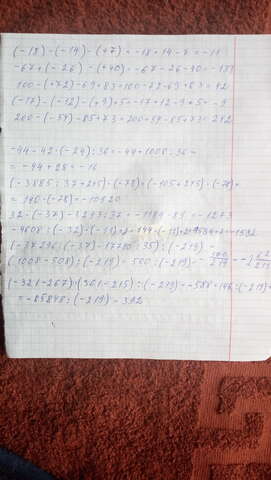 (-18)-(-14)-(+7)=-18+14-7=-11
-67+(-26)-(+40)=-67-26-40=-133
100-(+72)-69+83=100-72-69+83=42
(-17)-(-12)-(+9)+5=-17+12-9+5=-9
200-(-54)-85+73=200+54-85+73=242
-44-42·(-24):36=-44+1008:36=
=-44+28=-16
(-3885:37+215)·(-78)=(-105+215)·(-78)=
32·(-37)-3293:37=-1184-89=-1273
-4608:(-32)·(-11)
(-37296:(-37)-17780:35):(-219)=
(1008-508):(-219)=500:(-219)=
(-321-267)·(361-215):(-219)=-588·146:(-219)=
=-85848:(-219)=392